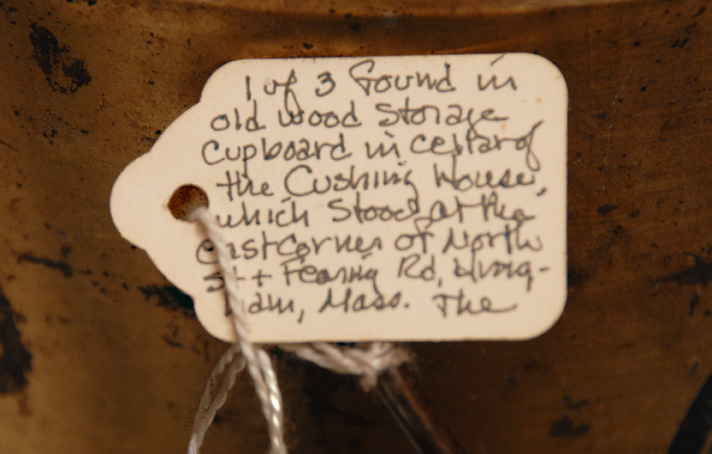 1 of 3 found in
old wood storage
cupboard in cellar of
the Cushing House,
which stood at the
east corner of North
St + Fearing Rd, Hing-
ham, Mass. The